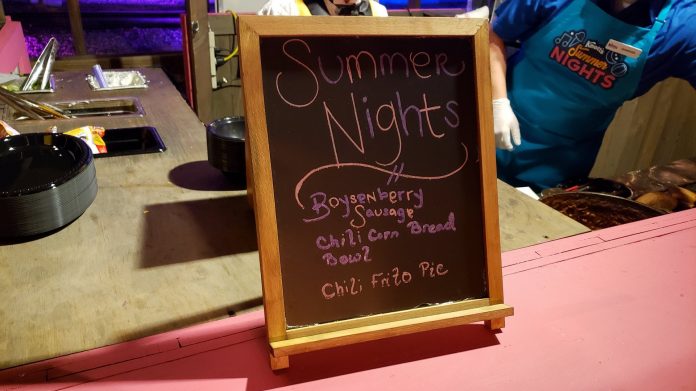 Summer
Nights
Boysenberry
Sausage
Chili Corn Bread
Bowl
Chili Frito Pie
Knott's
Summer
NIGHTS